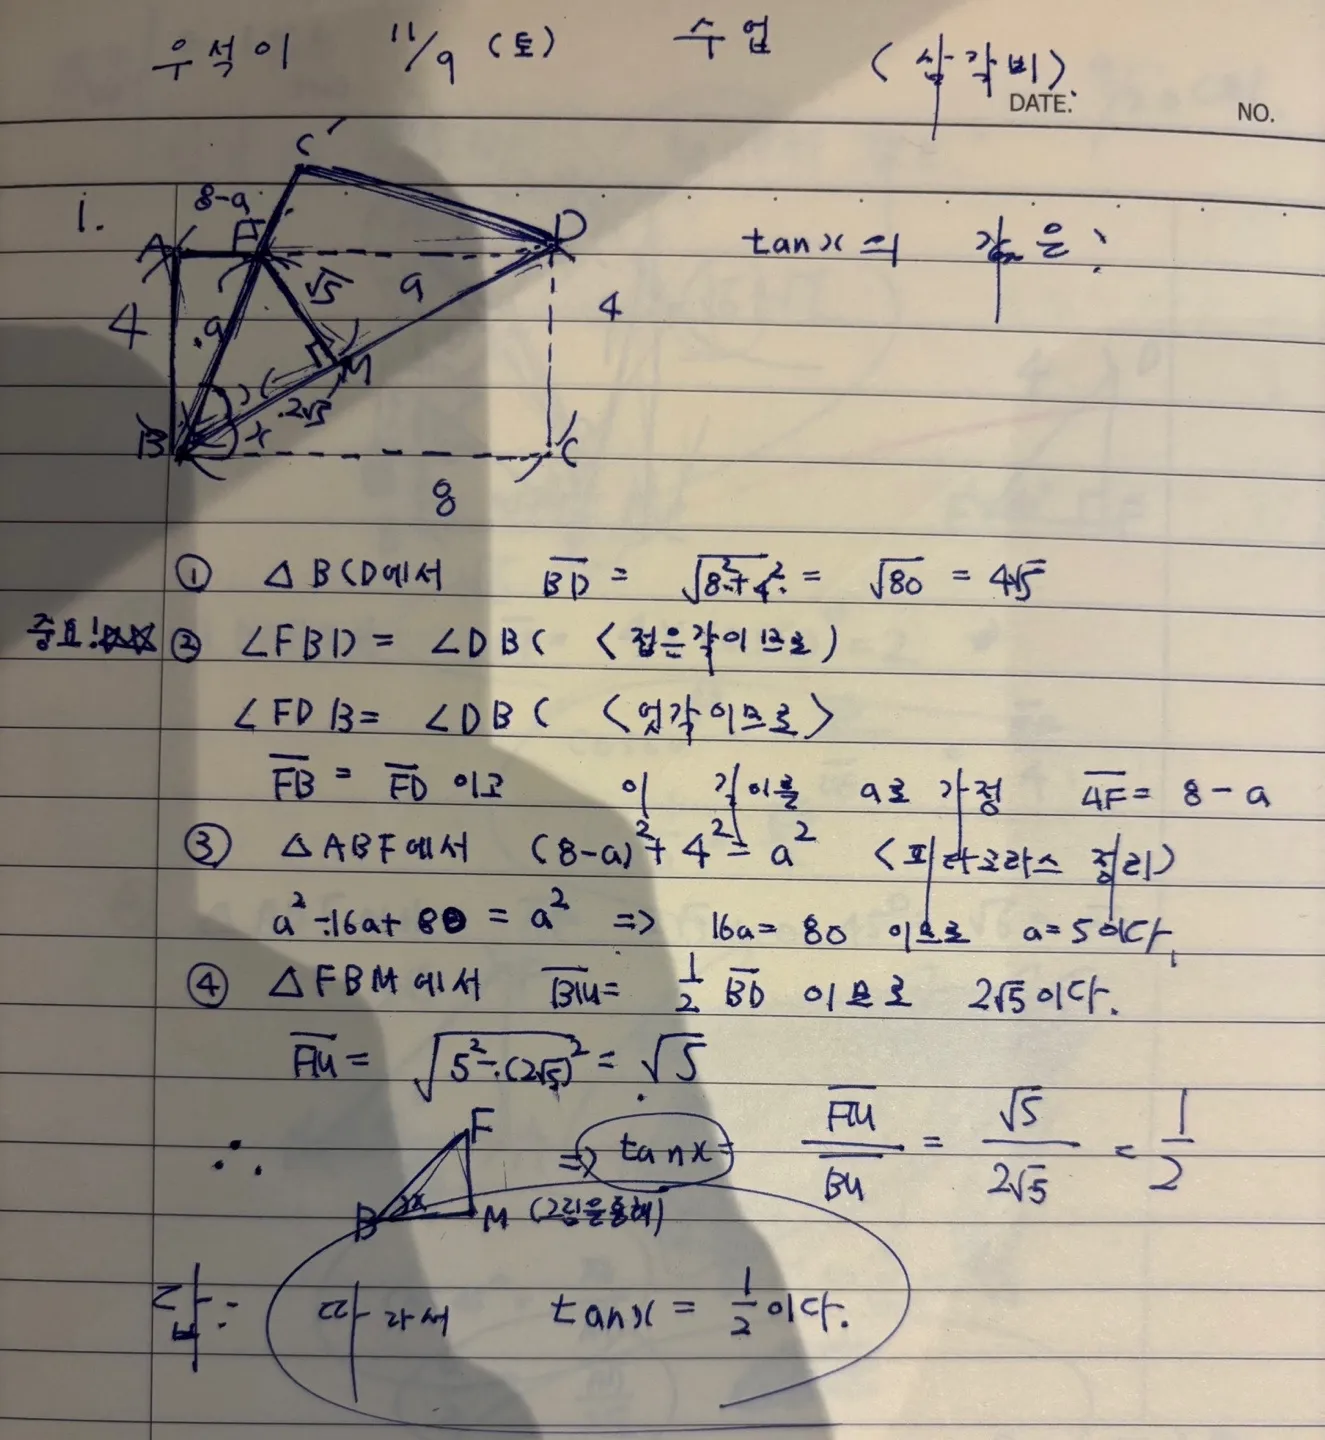 우석이 11/9 (토) 수업 (삼각비).
DATE. NO.
1. tanx의 값은?
C'
8-a
A F D
√5 a
4 a 4
M
2√5
B x C
8
① △BCD에서 BD = √8²+4² = √80 = 4√5
중요!☆☆ ② ∠FBD = ∠DBC <접은각이므로)
∠FDB = ∠DBC <엇각이므로>
FB = FD 이고 이 길이를 a로 가정 AF = 8-a
③ △ABF에서 (8-a)² + 4² = a² <피타고라스 정리>
a² -16a+80 = a² => 16a = 80 이므로 a=5이다.
④ △FBM에서 BM = 1/2 BD 이므로 2√5이다.
FM = √5²-(2√5)² = √5
∴ F B x M (그림을통해) => tanx = FM/BM = √5/2√5 = 1/2
답: 따라서 tanx = 1/2이다.